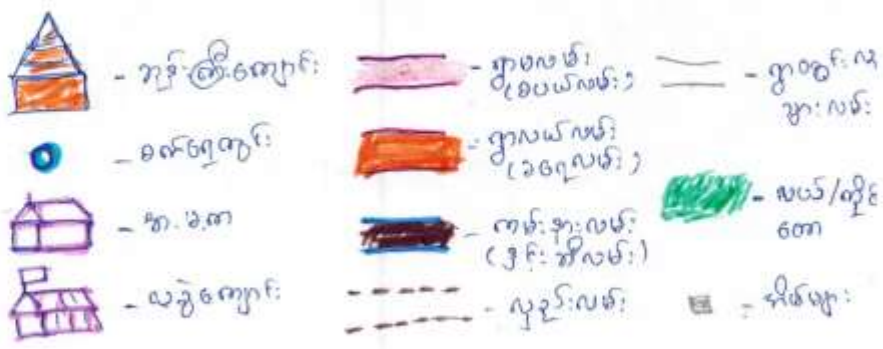 - ဘုန်းကြီးကျောင်း
- စက်ရေတွင်း
- အ.မ.က
- လ.ခွဲကျောင်း
- ရွာမလမ်း
(စပယ်လမ်း)
- ရွာလယ်လမ်း
(ခရေလမ်း)
- ကမ်းနားလမ်း
(နှင်းဆီလမ်း)
- လှည်းလမ်း
- ရွာတွင်းလူ
သွားလမ်း
- လယ်/ကိုင်
တော
- အိမ်များ